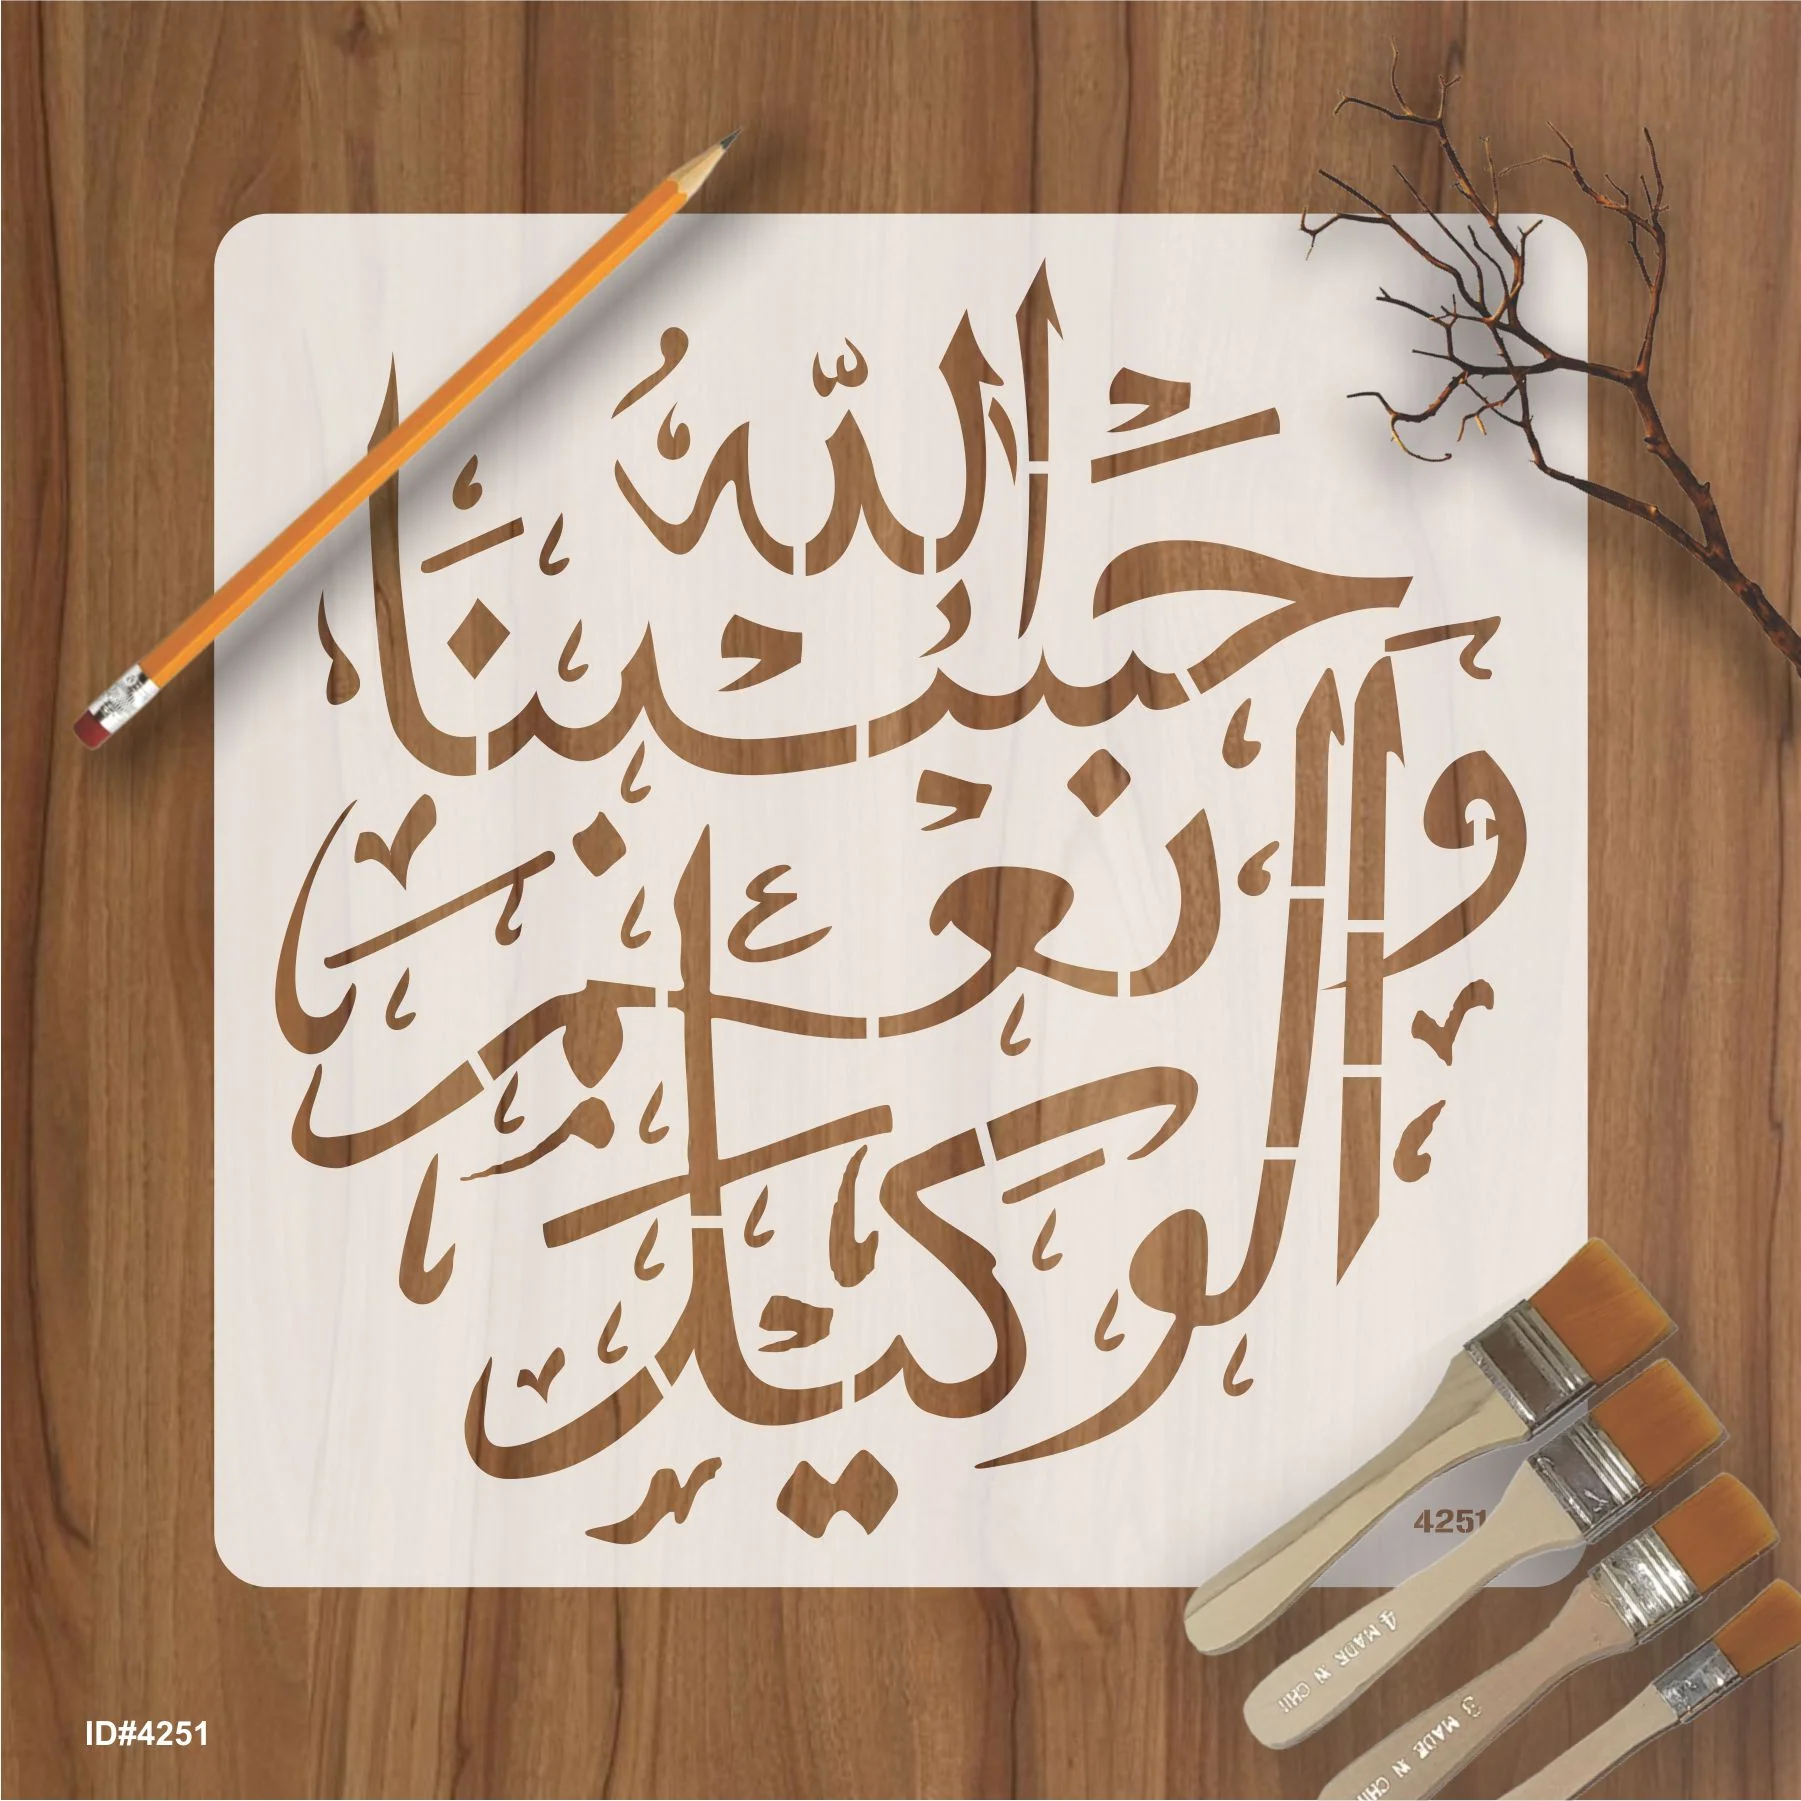 حَسْبُنَا اللّٰهُ
وَنِعْمَ
الْوَكِيلُ
4251
4 MADE IN CHI
3 MADE IN CHI
ID#4251